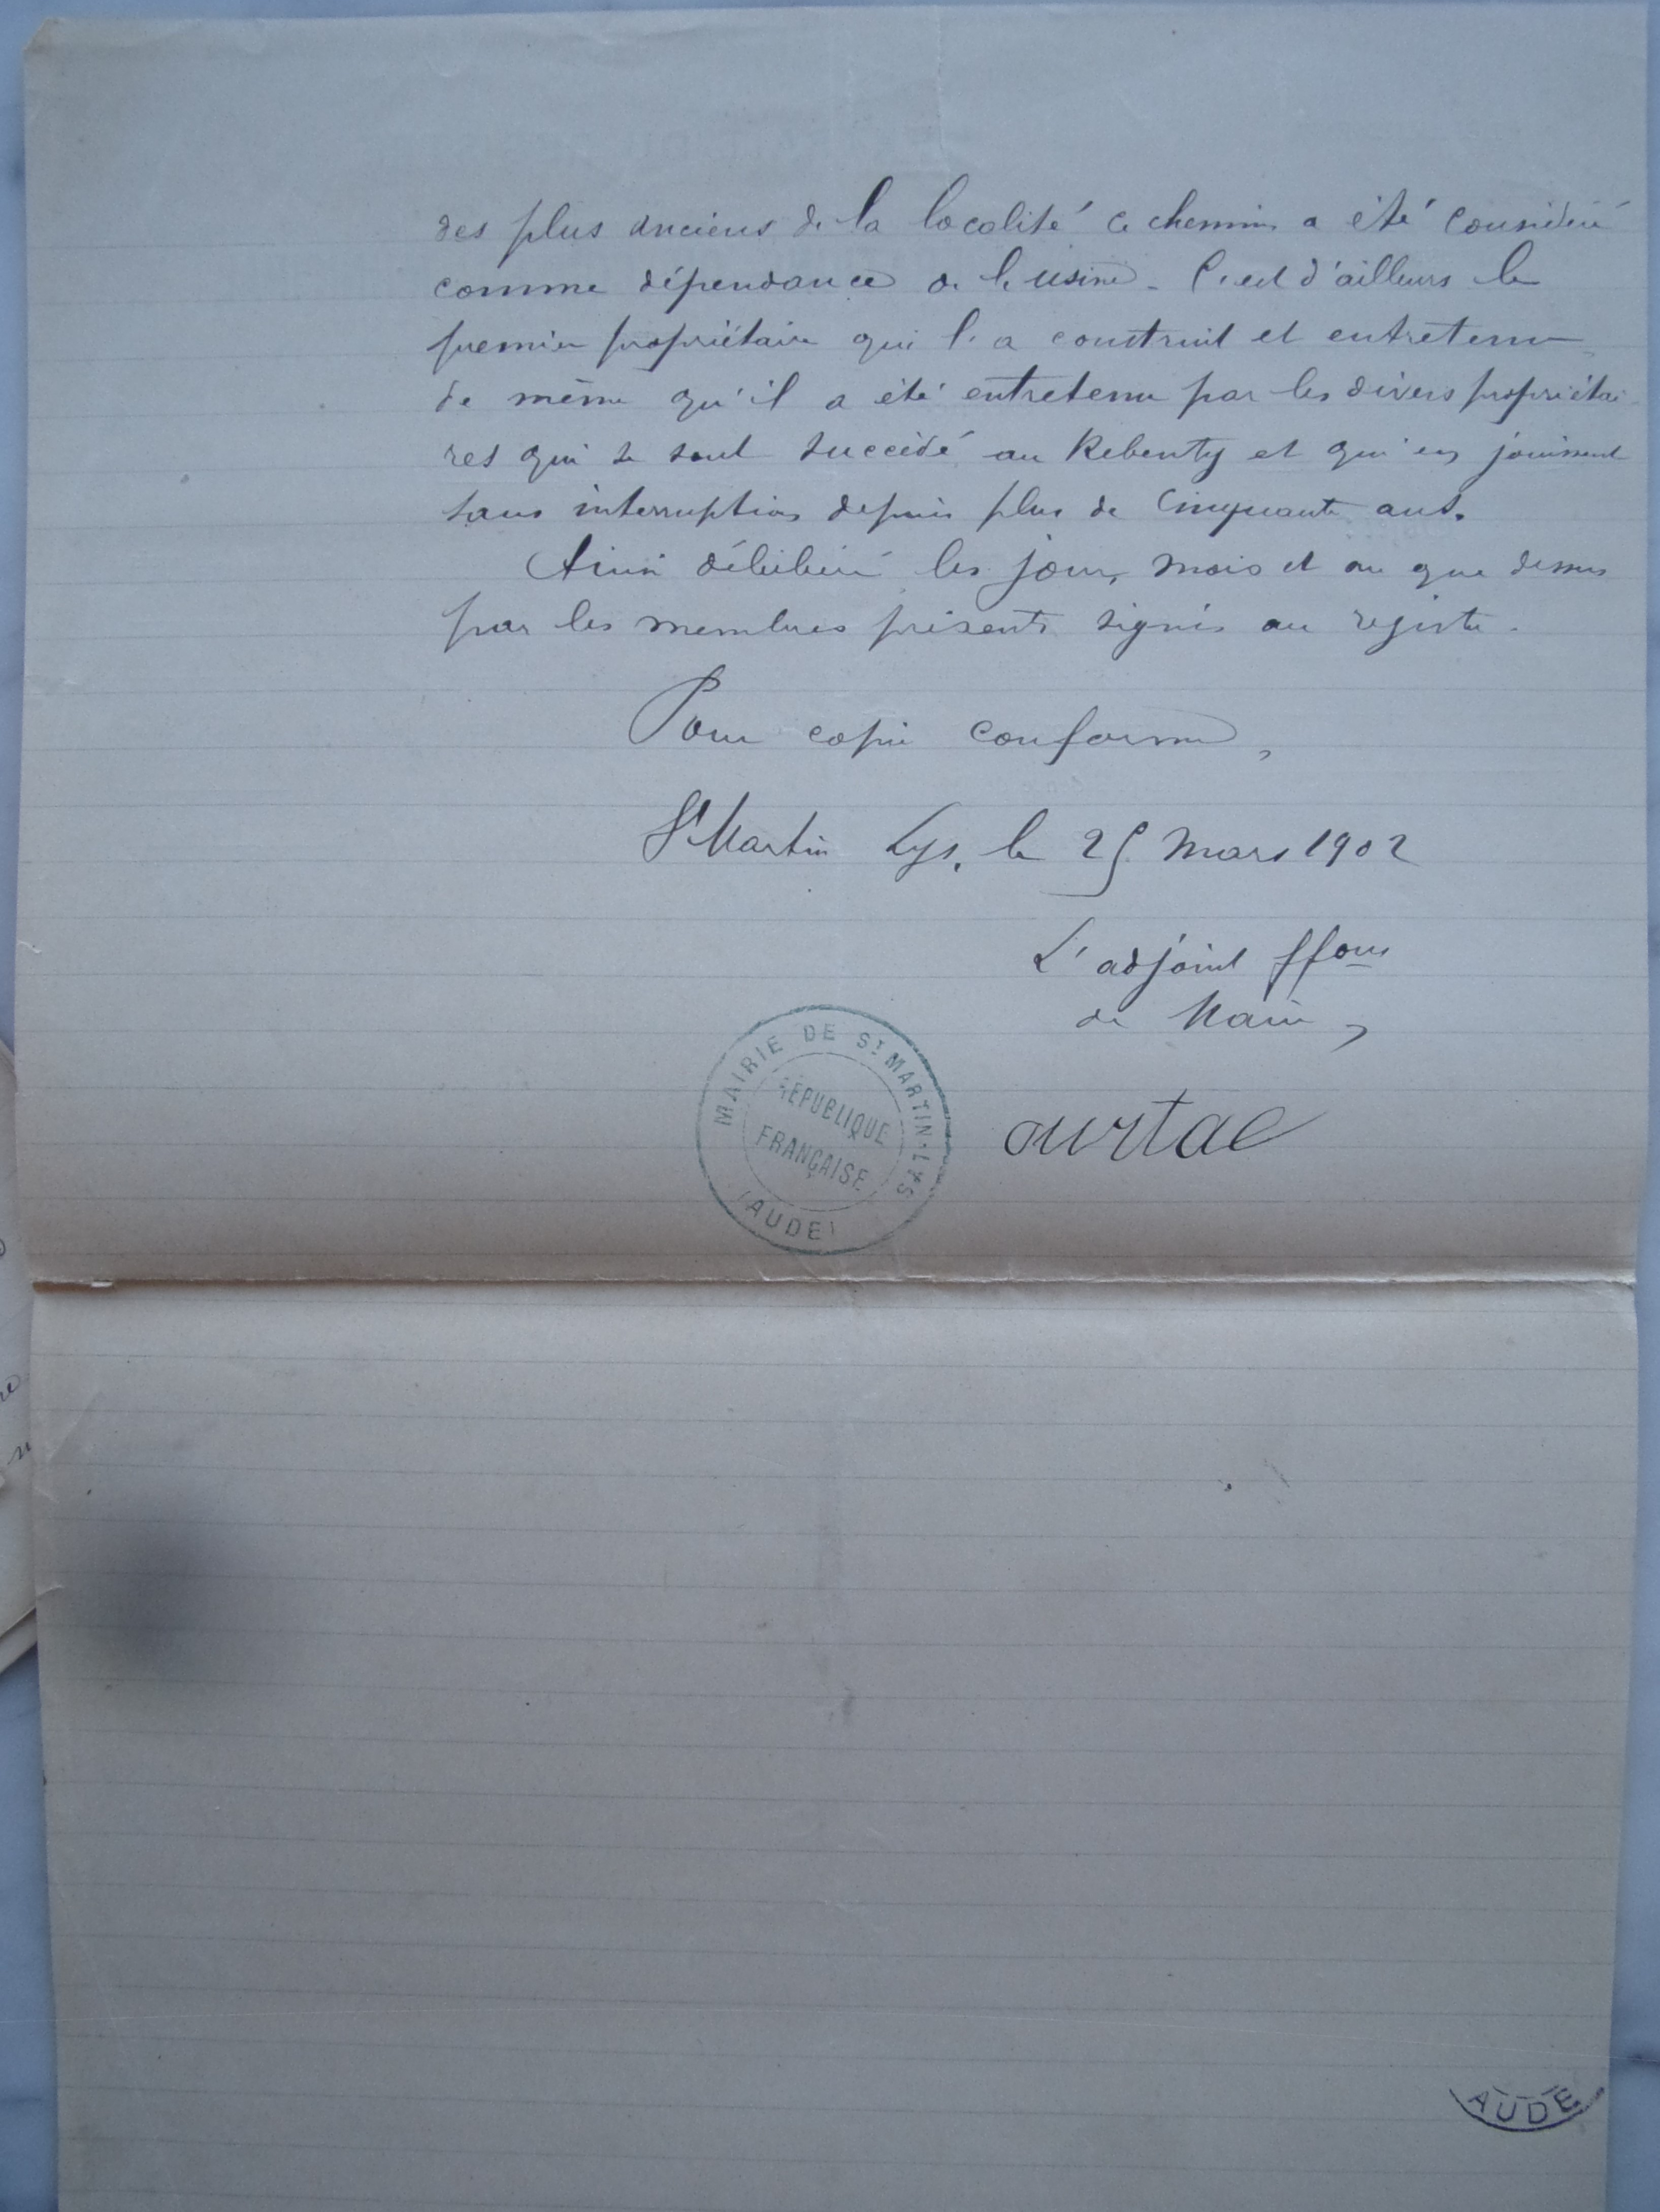 des plus anciens de la localité ce chemin a été considéré
comme dépendance de l'usine - C'est d'ailleurs le
premier propriétaire qui l'a construit et entretenu
de même qu'il a été entretenu par les divers propriétai-
res qui se sont succédé au Rebenty et qui en jouissent
sans interruption depuis plus de Cinquante ans.
Ainsi délibéré les jour, mois et an que dessus
par les membres présents signés au registre.
Pour copie conforme,
St Martin Lys, le 25 Mars 1902
L'adjoint ffons
de Maire,
MAIRIE DE ST MARTIN-LYS
RÉPUBLIQUE
FRANÇAISE
(AUDE)
ourtal
AUDE